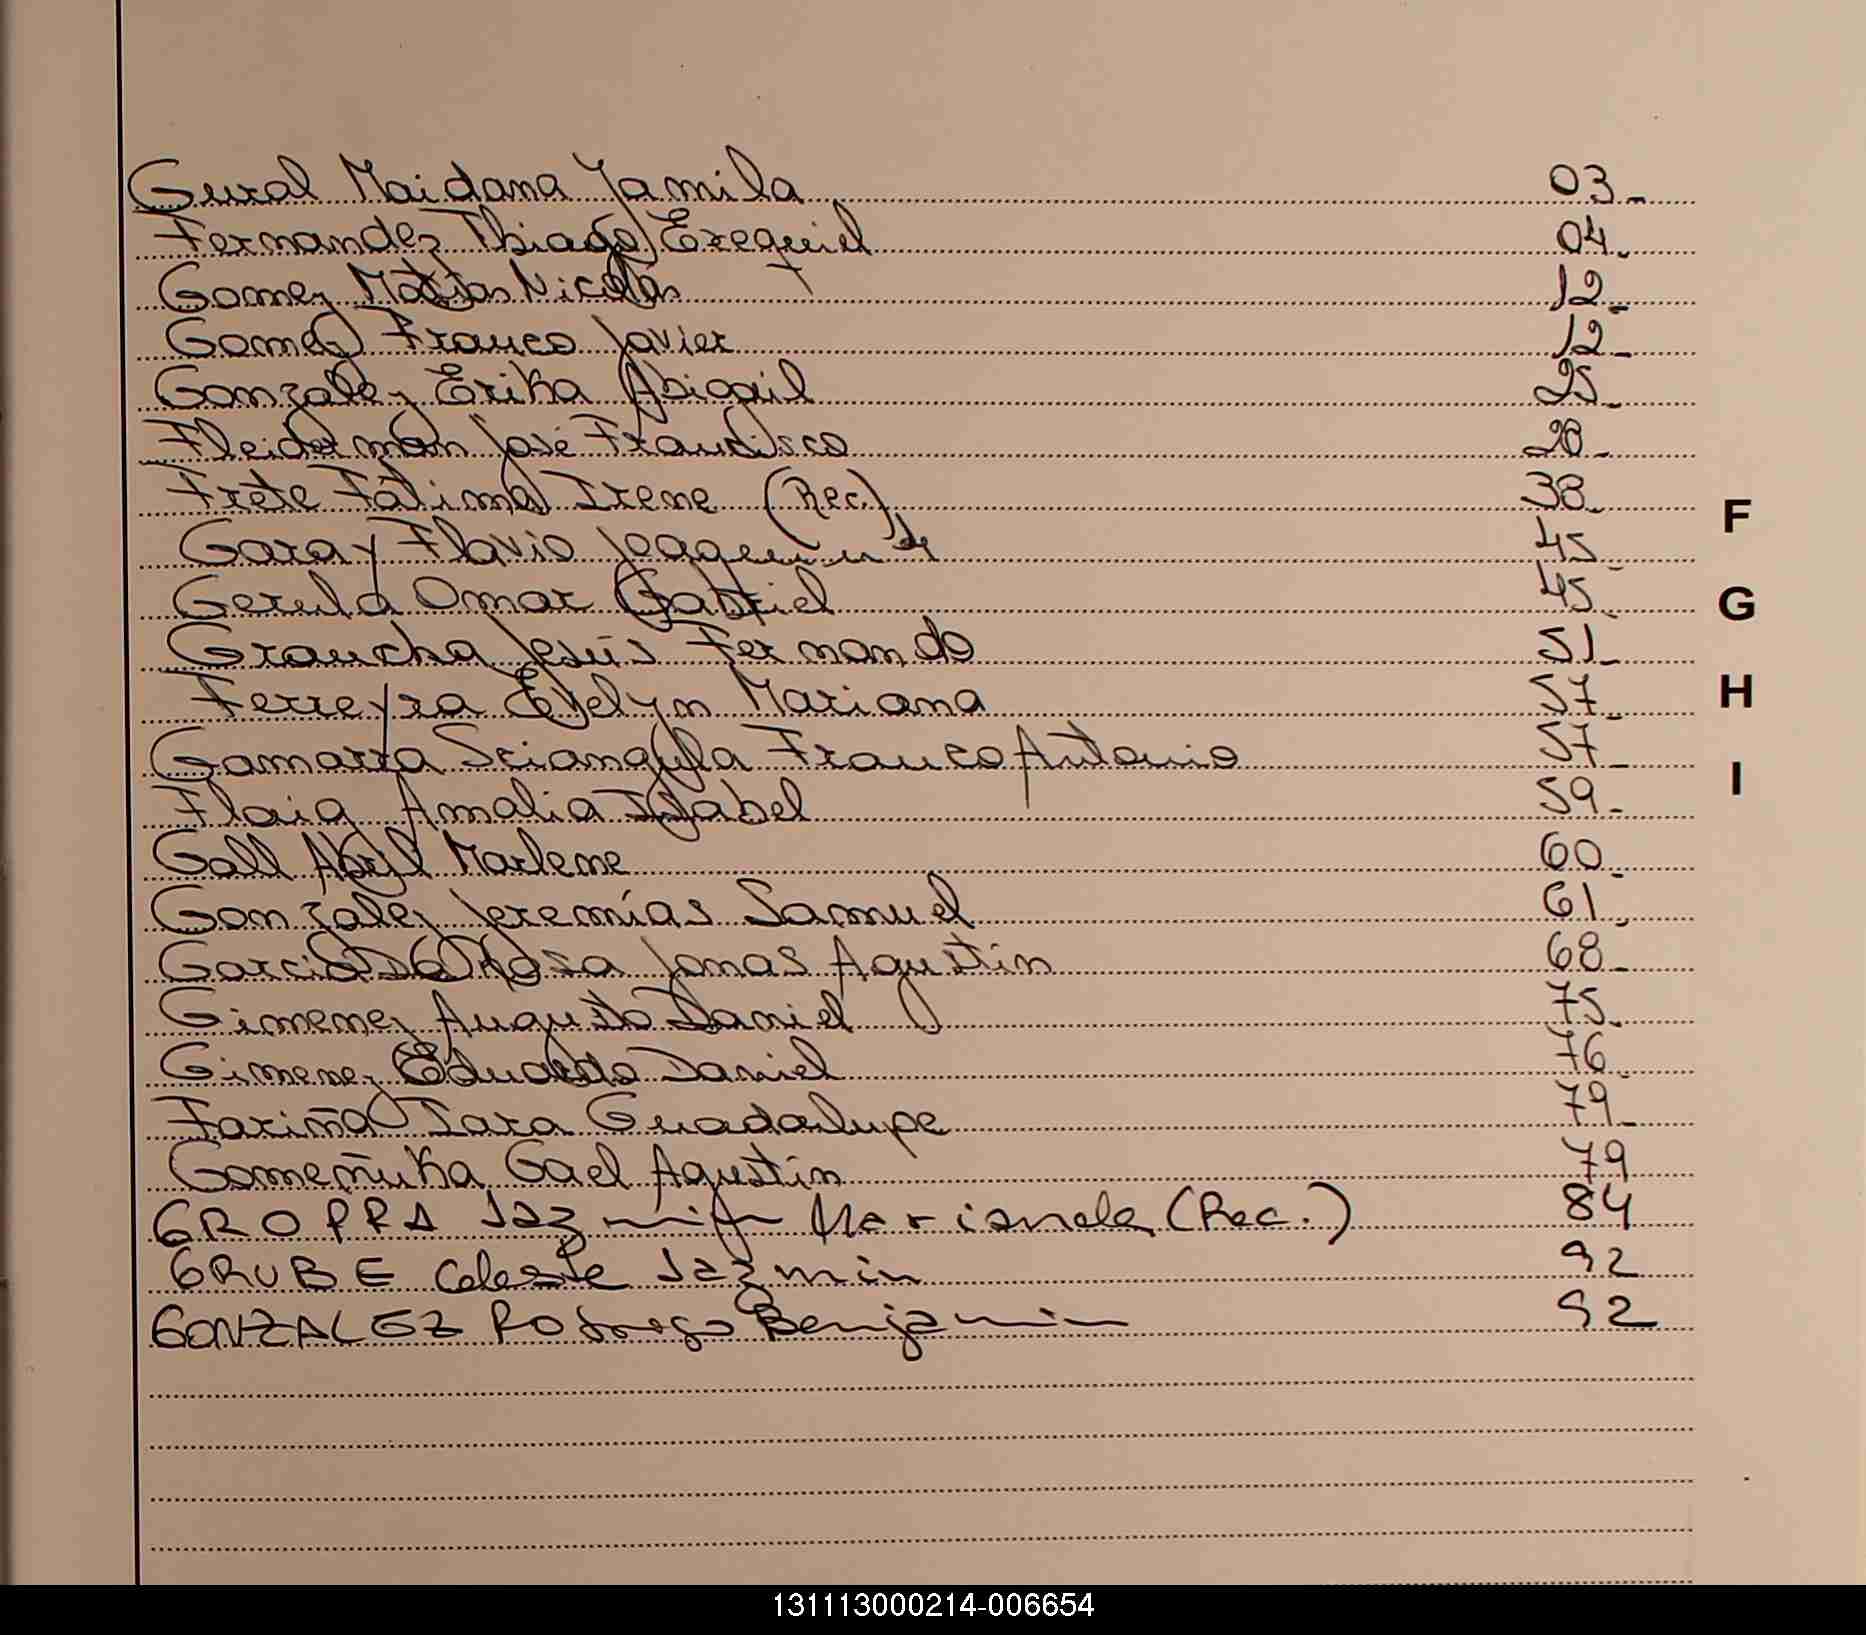 Gural Maidana Yamila 03-
Fernandez Thiago Ezequiel 04-
Gomez Matías Nicolás 12-
Gomez Franco Javier 12-
Gonzalez Erika Abigail 25-
Fleiderman José Francisco 28-
Frete Fátima Irene (Rec.) 38-
Garay Flavio 45-
Gerula Omar Gabriel 45-
Graucha Jesús Fernando 51-
Ferreyra Evelyn Mariana 57-
Gamarra Sciangula Franco Antonio 57-
Flaig Amalia Isabel 59-
Gall Abril Marlene 60-
Gonzalez Jeremías Samuel 61-
Garcia Da Rosa Jonas Agustín 68-
Gimenez Augusto Daniel 75-
Gimenez Eduardo Daniel 76-
Fariña Iara Guadalupe 79-
Gomeñuka Gael Agustín 79
GROPPA Jazmin Marianela (Rec.) 84
GRUBE Celeste Jazmin 92
GONZALEZ Rodrigo Benjamin 92
F
G
H
I
131113000214-006654